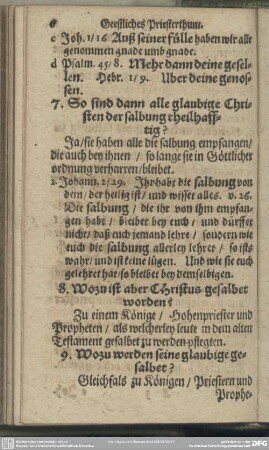 6 Geistliches Priesterthum.
c Joh. 1/16 Auß seiner fülle haben wir alle
genommen gnade umb gnade.
d Psalm. 45/8. Mehr dann deine gesel-
len. Hebr. 1/9. Uber deine genos-
sen.
7. So sind dann alle glaubige Chri-
sten der salbung theilhaff-
tig?
Ja/ sie haben alle die salbung empfangen/
die auch bey ihnen / so lange sie in Göttlicher
ordnung verharren/ bleibet.
1. Johann. 2/29. Ihr habt die salbung von
dem/ der heilig ist/ und wisset alles. v. 26.
Die salbung / die ihr von ihm empfan-
gen habt / bleibet bey euch / und dürffet
nicht/ daß euch jemand lehre / sondern wie
euch die salbung allerley lehret / so ists
wahr/ und ist keine lügen. Und wie sie euch
gelehret hat/ so bleibet bey demselbigen.
8. Wozu ist aber Christus gesalbet
worden?
Zu einem Könige / Hohenpriester und
Propheten / als welcherley leute in dem alten
Testament gesalbt zu werden pflegten.
9. Wozu werden seine glaubige ge-
salbet?
Gleichfals zu Königen / Priestern und
Prophe-